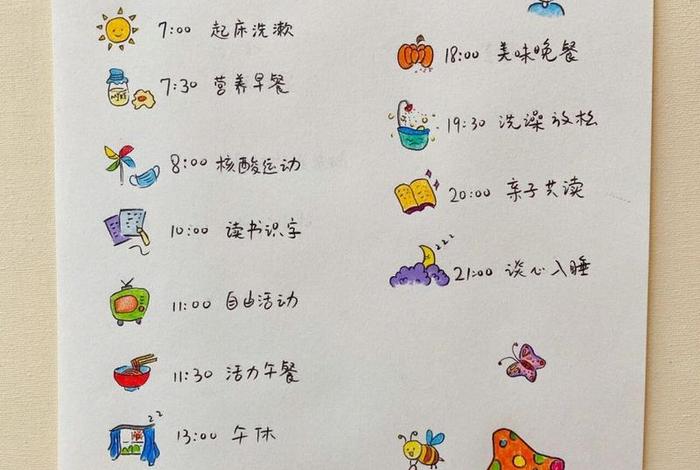 7:00 起床洗漱
7:30 营养早餐
8:00 核酸运动
10:00 读书识字
11:00 自由活动
11:30 活力午餐
13:00 午休
zz
18:00 美味晚餐
19:30 洗澡放松
20:00 亲子共读
zzz
21:00 谈心入睡